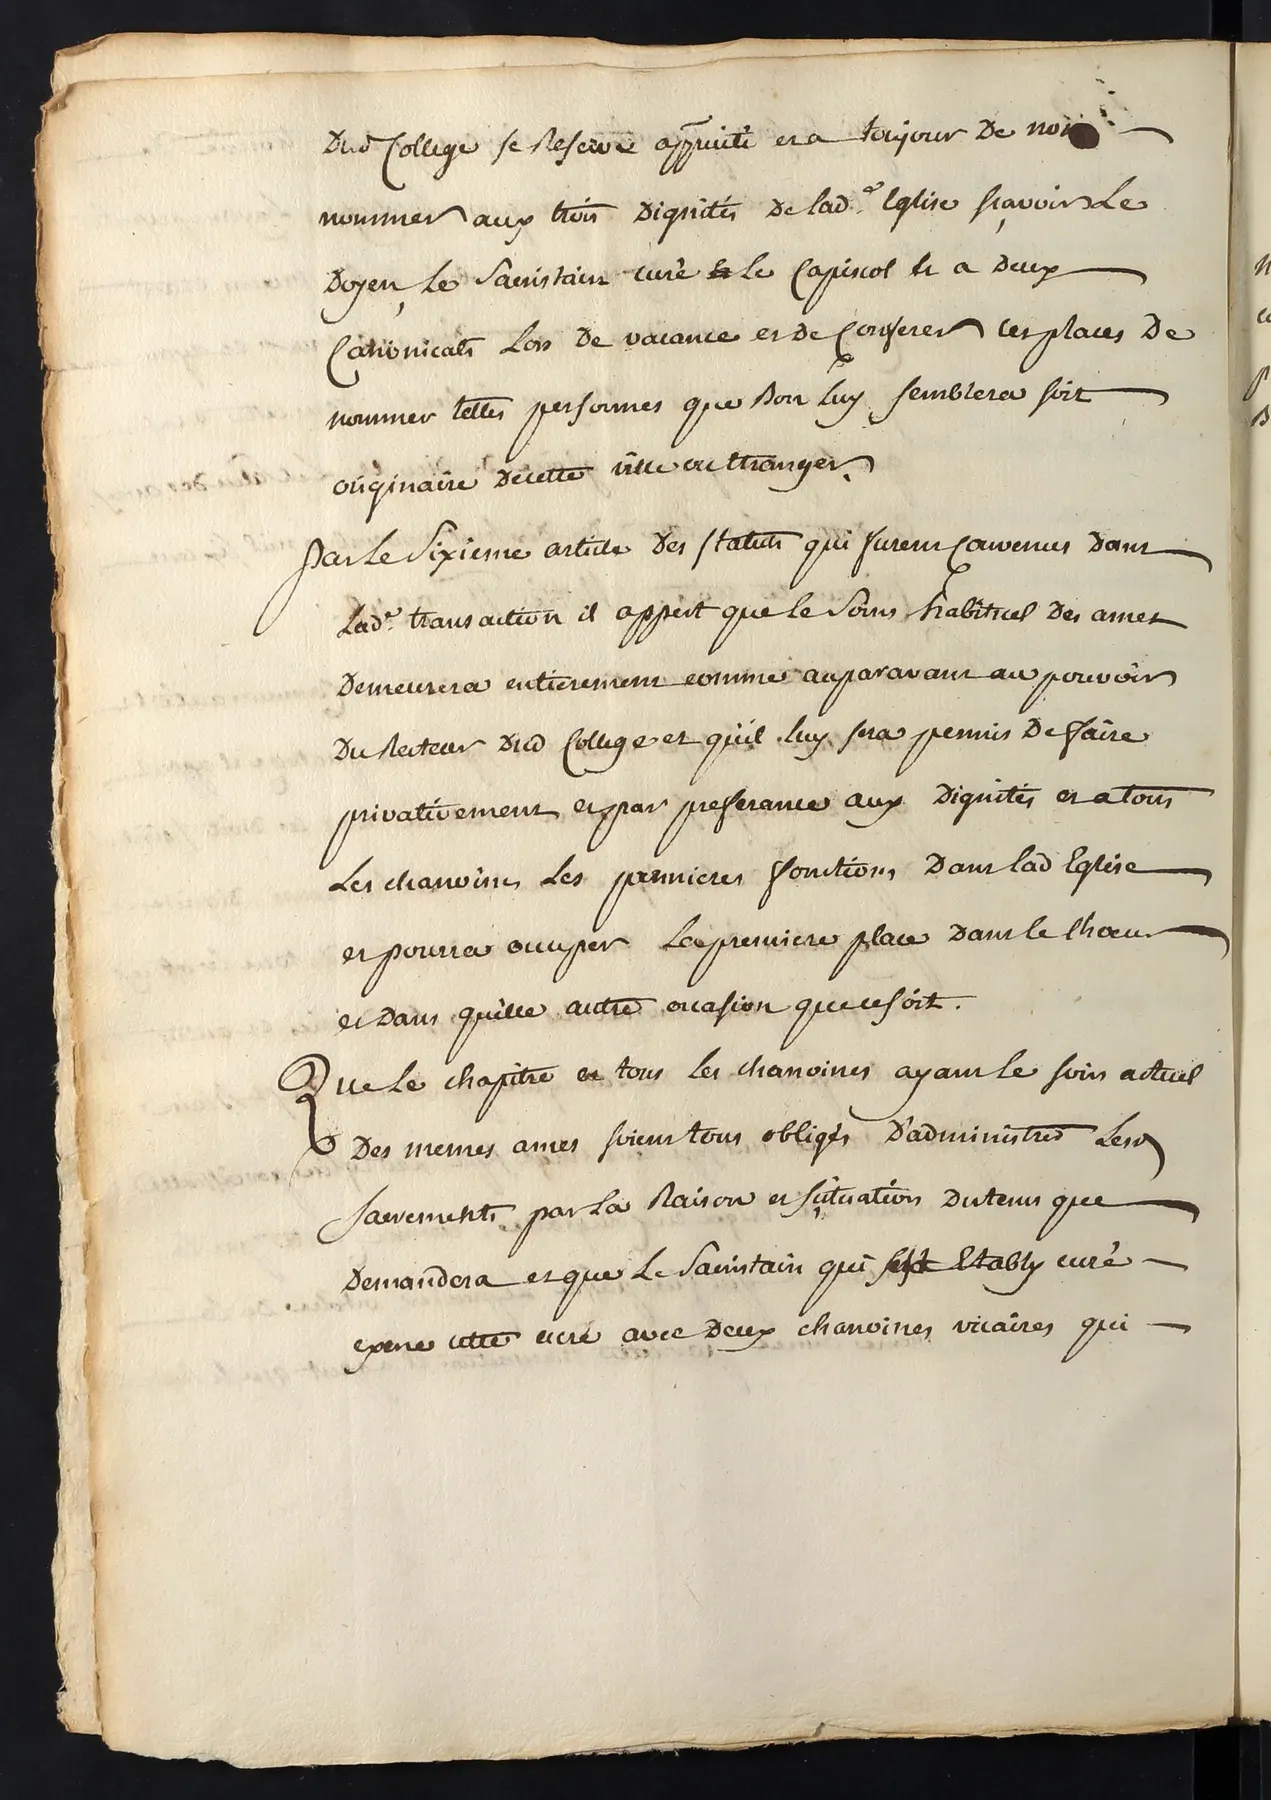 Dud College se Reserve appreuté et a toujour De nom
nommer aux trois Dignités De lad.e Eglise sçavoir Le
Doyen, Le Sacristain curé & Le Capiscol et a Deux
Canonicats Lors De vacance et De Conferer ces places De
nommer telles personnes que Bon luy semblera soit
originaire De cette ville ou etranger.
Par Le Sixieme article Des statuts qui furent Convenus Dans
Lad.e transaction il appert que le Soins habituel Des ames
Demeurera entierement comme auparavant au pouvoir
Du Recteur Dud College et qu'il luy sera permis De faire
privativement et par preferance aux Dignités et a tous
Les chanoines Les premieres fonctions Dans lad Eglise
et pourra occuper La premiere place Dans le Chœur
et Dans quelle autre occasion que ce soit.
Que Le chapitre et tous les chanoines ayant le soin actuel
Des memes ames soient tous obligés D'administrer Les
sacrements par La Raison et situation Du tems que
Demandera et que Le Sacristain qui est Etably curé
exerce cette cure avec Deux chanoines vicaires qui